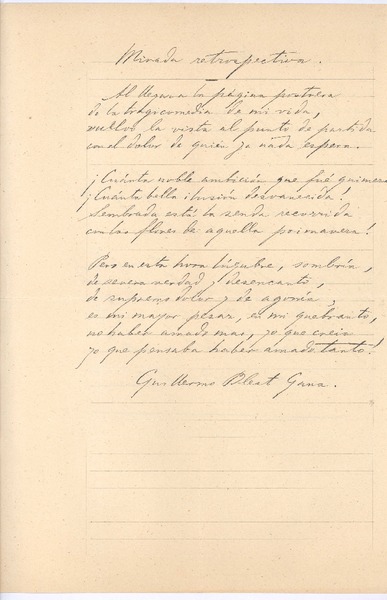 Mirada retrospectiva.
Al llegar a la página postrera
de la tragicomedia de mi vida,
vuelvo la vista al punto de partida
con el dolor de quien ya nada espera.
¡Cuánta noble ambición que fué quimera!
¡Cuánta bella ilusión desvanecida!
Sembrada está la senda recorrida
con las flores de aquella primavera!
Pero en esta hora lúgubre, sombría,
de severa verdad y desencanto,
de supremo dolor y de agonía,
es mi mayor pesar, en mi quebranto,
no haber amado mas, yo que creía
yo que pensaba haber amado tanto!
Guillermo Blest Gana.